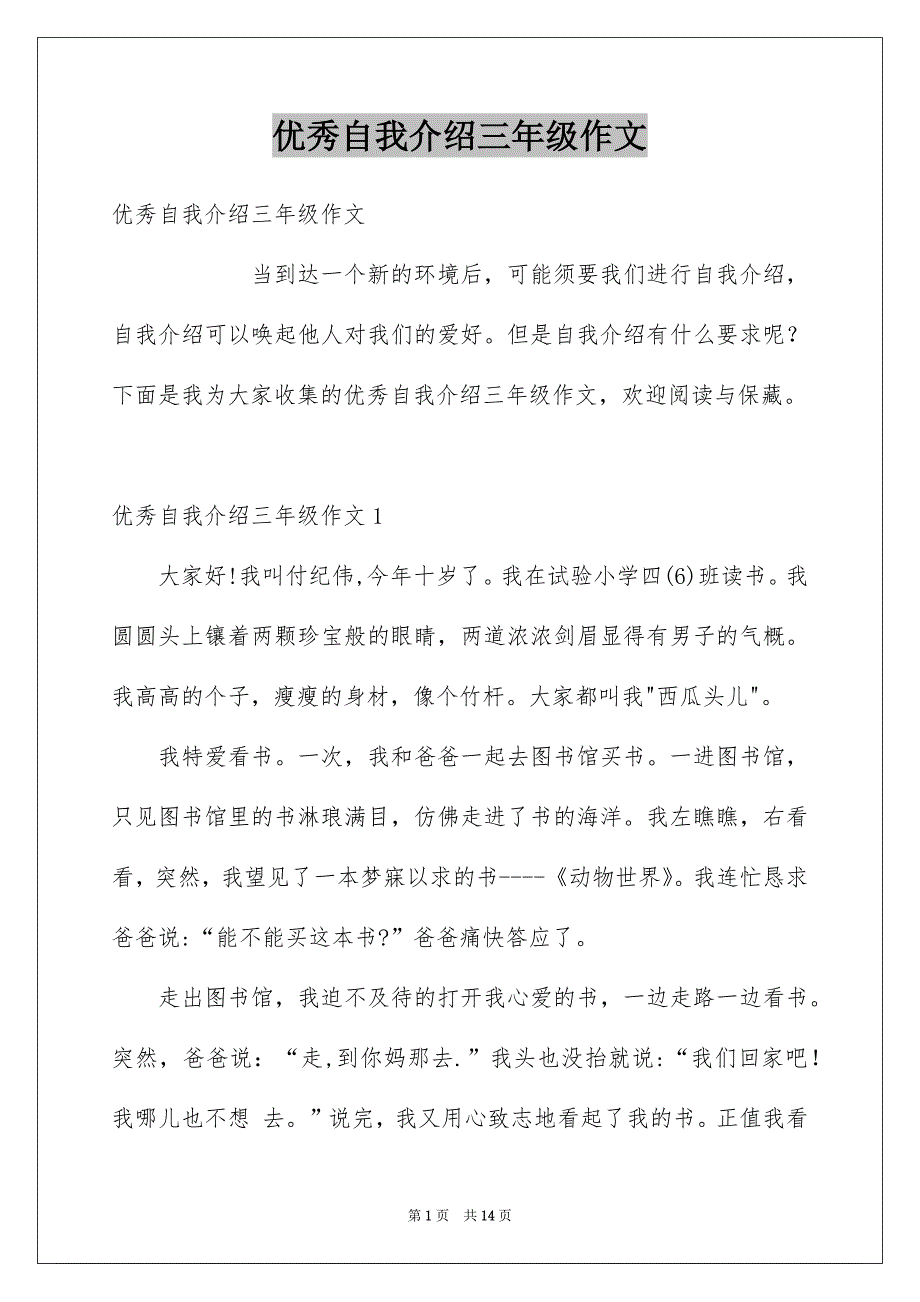 优秀自我介绍三年级作文
优秀自我介绍三年级作文
当到达一个新的环境后，可能须要我们进行自我介绍，
自我介绍可以唤起他人对我们的爱好。但是自我介绍有什么要求呢？
下面是我为大家收集的优秀自我介绍三年级作文，欢迎阅读与保藏。
优秀自我介绍三年级作文1
大家好!我叫付纪伟,今年十岁了。我在试验小学四(6)班读书。我
圆圆头上镶着两颗珍宝般的眼睛，两道浓浓剑眉显得有男子的气概。
我高高的个子，瘦瘦的身材，像个竹杆。大家都叫我"西瓜头儿"。
我特爱看书。一次，我和爸爸一起去图书馆买书。一进图书馆，
只见图书馆里的书淋琅满目，仿佛走进了书的海洋。我左瞧瞧，右看
看，突然，我望见了一本梦寐以求的书----《动物世界》。我连忙恳求
爸爸说:“能不能买这本书?”爸爸痛快答应了。
走出图书馆，我迫不及待的打开我心爱的书，一边走路一边看书。
突然，爸爸说：“走,到你妈那去.”我头也没抬就说:“我们回家吧！
我哪儿也不想 去。”说完，我又用心致志地看起了我的书。正值我看
第1页 共14页